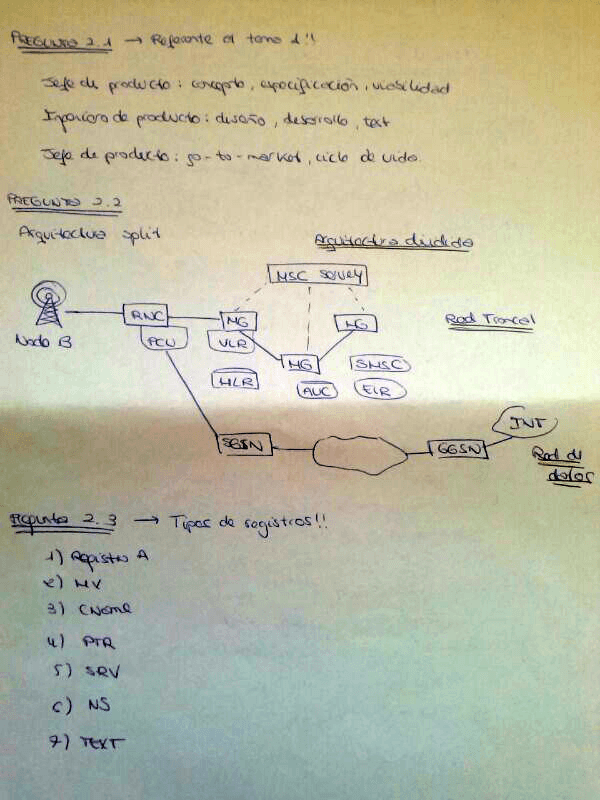 PREGUNTA 2.1 → Referente el tema 1!!
Jefe de producto: concepto, especificación, viabilidad
Ingeniero de producto: diseño, desarrollo, text
Jefe de producto: go-to-market, ciclo de vida.
PREGUNTA 2.2
Arquitectura split
Arquitectura dividida
MSC Server
RNC
MG
MG
Red Troncal
Nodo B
PCU
VLR
MG
SMSC
HLR
AUC
EIR
INT
SGSN
GGSN
Red de
datos
Pregunta 2.3 → Tipos de registros!!
1) Registro A
2) MX
3) CName
4) PTR
5) SRV
6) NS
7) TEXT